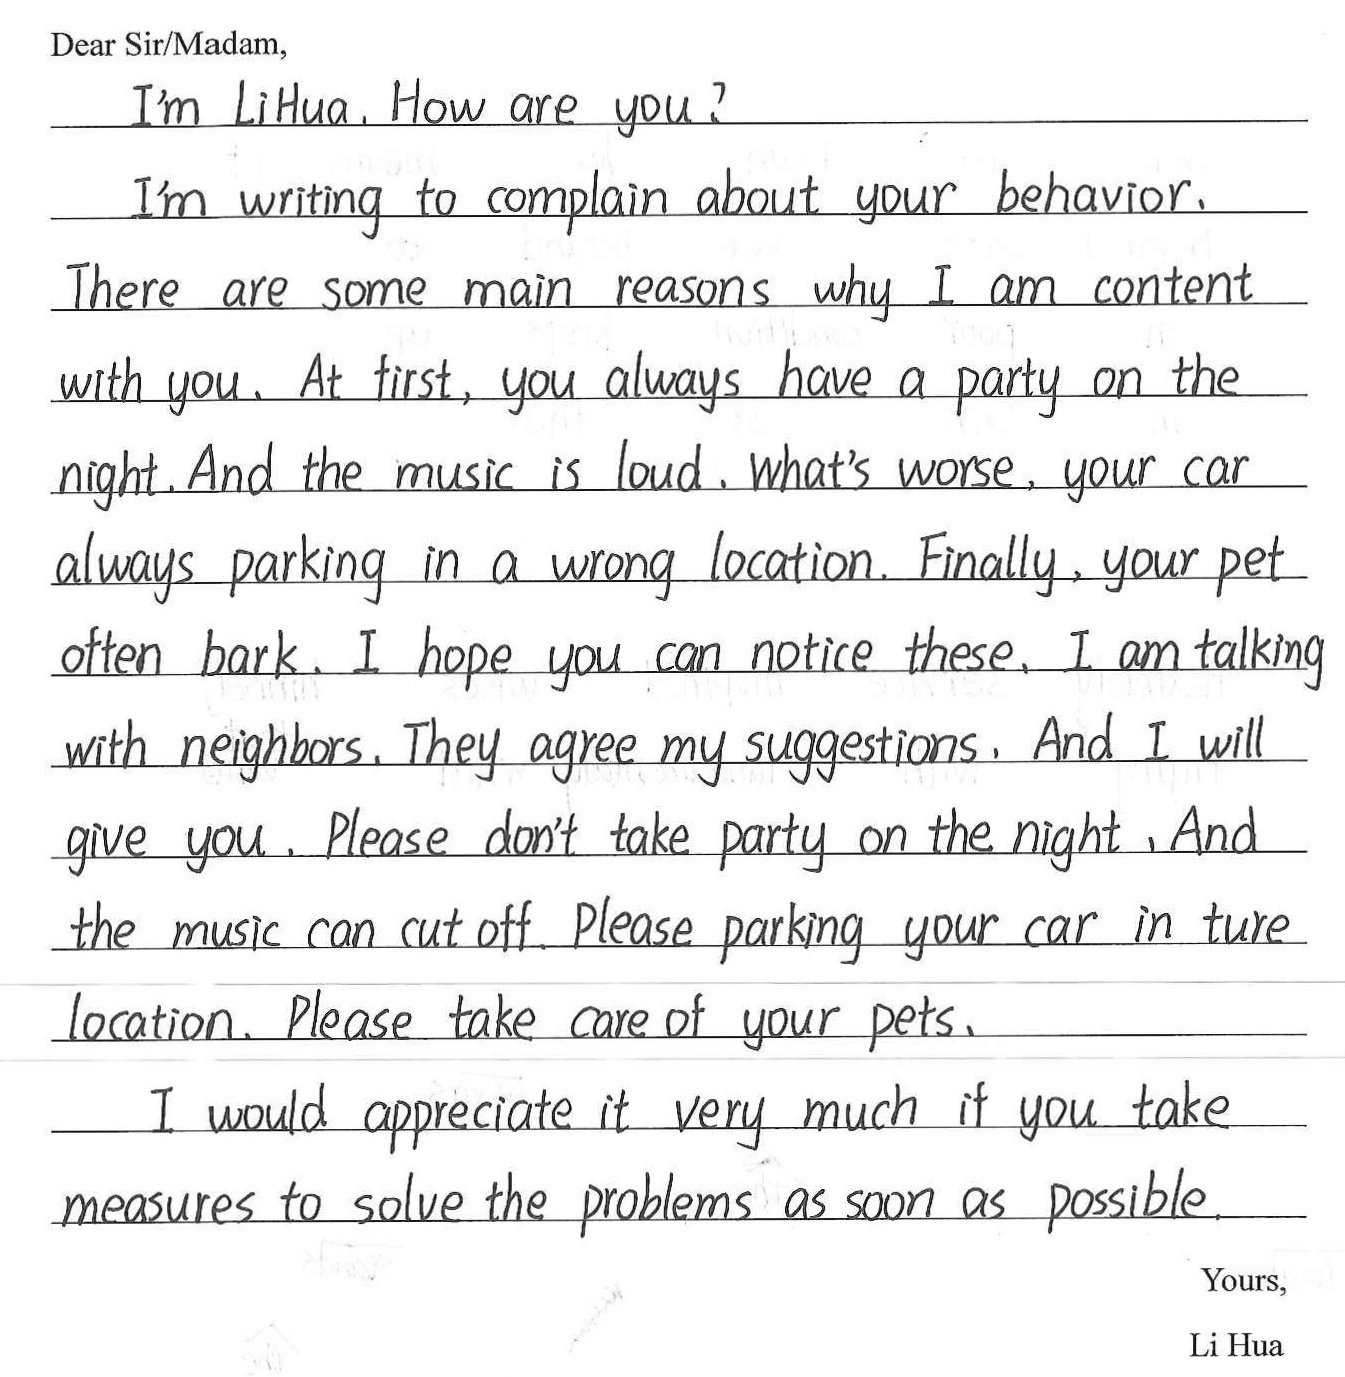 Dear Sir/Madam,
I'm LiHua. How are you?
I'm writing to complain about your behavior.
There are some main reasons why I am content
with you. At first, you always have a party on the
night. And the music is loud. What's worse, your car
always parking in a wrong location. Finally, your pet
often bark. I hope you can notice these. I am talking
with neighbors. They agree my suggestions. And I will
give you. Please don't take party on the night. And
the music can cut off. Please parking your car in ture
location. Please take care of your pets.
I would appreciate it very much if you take
measures to solve the problems as soon as possible.
Yours,
Li Hua